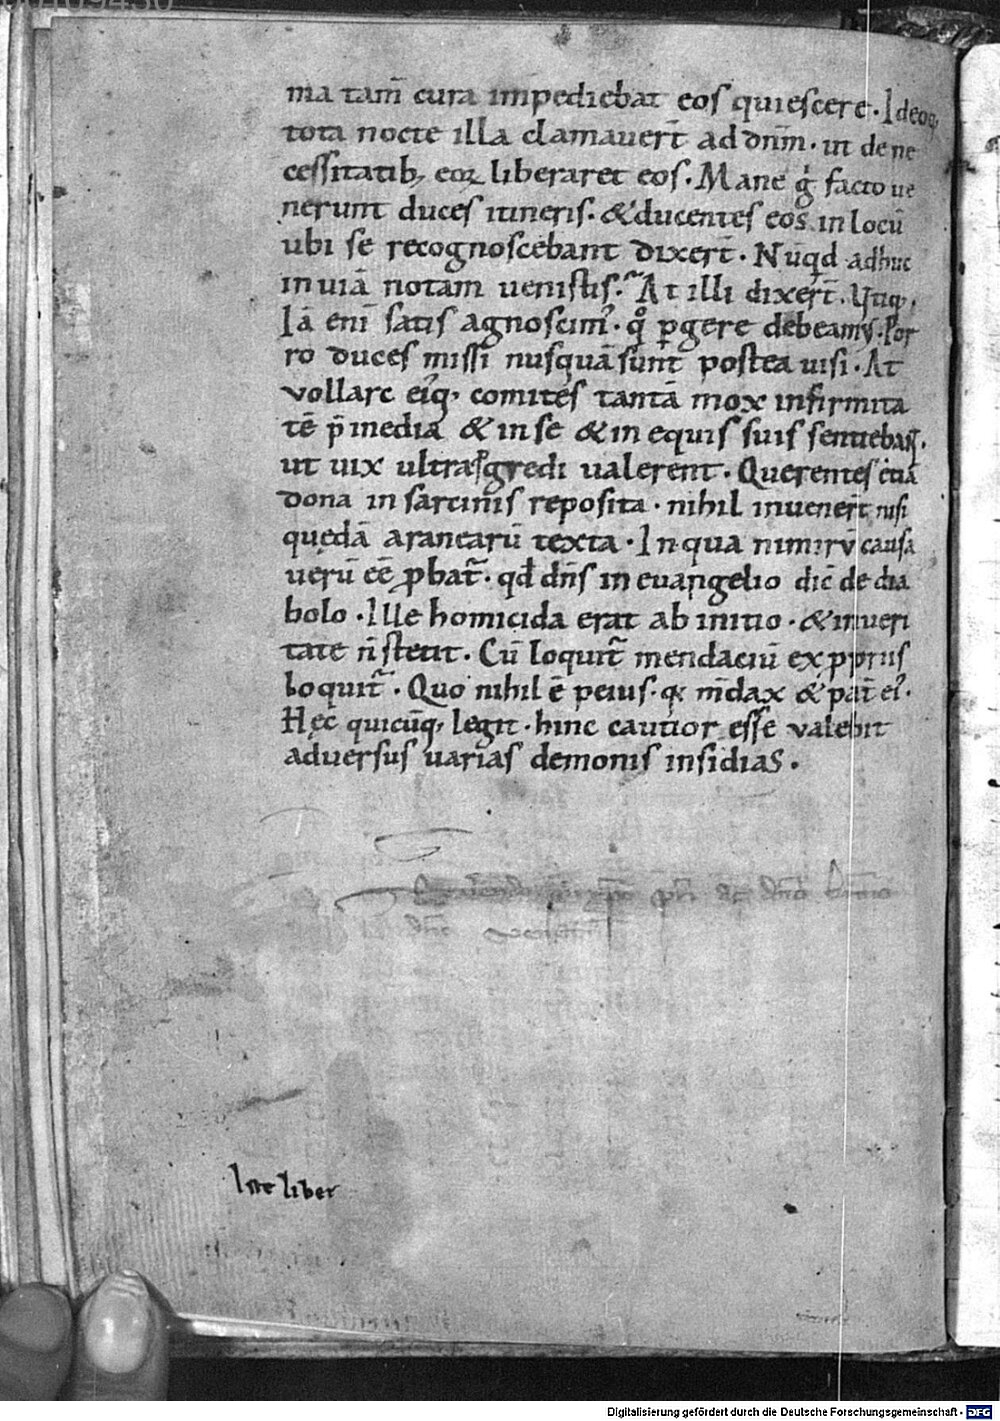 00109430
ma tam̄ cura impediebat eos quiescere. Ideoq;
tota nocte illa clamauer̄t ad dn̄m. ut de ne
cessitatib; eoꝝ liberaret eos. Mane g̊ facto ue
nerunt duces itineris. & ducentes eos in locū
ubi se recognoscebant dixer̄t. Nūqd adhuc
in uiā notam uenistis? At illi dixer̄t. Vtiq;.
Iā eni satis agnoscim᷒. q̊ ꝑgere debeamus. Por
ro duces missi nusquā sunt postea uisi. At
vollarc ei᷒q; comites tantā mox infirmita
tē p̄ inedia & in se & in equis suis sentiebant.
ut uix ultra ꝓgredi ualerent. Querentes etiā
dona in sarcinis reposita. nihil inuener̄t nisi
quędā aranearū texta. In qua nimirū causa
uerū eē ꝓbat᷑. qd dn̄s in euangelio dic̄ de dia
bolo. Ille homicida erat ab initio. & in ueri
tate n̄ stetit. Cū loquit᷑ mendaciū ex ꝓpriis
loquit᷑. Quo nihil ē peius. q; m̄dax & pat̄ ei᷒.
Hęc quicūq; legit. hinc cautior esse valebit
adversus uarias demonis insidias.
Iste liber
Digitalisierung gefördert durch die Deutsche Forschungsgemeinschaft - DFG